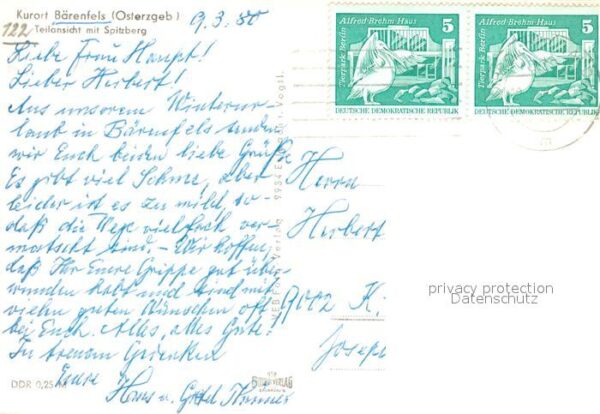 Kurort Bärenfels (Osterzgeb)
122 Teilansicht mit Spitzberg
9.3.80
Liebe Frau Haupt!
Lieber Herbert!
Aus unserem Winterur-
laub in Bärenfels senden
wir Euch beiden liebe Grüße
Es gibt viel Schnee, aber
leider ist es zu mild, so-
daß die Wege vielfach ver-
matscht sind. - Wir hoffen,
daß Ihr Eure Grippe gut über-
wunden habt und sind mit
vielen guten Wünschen oft
bei Euch. Alles, alles Gute!
In treuem Gedenken
Eure
Hans u. Gretel
DDR 0,25 M
VEB Verlag
Alfred-Brehm-Haus
Tierpark Berlin
5
DEUTSCHE DEMOKRATISCHE REPUBLIK
Alfred-Brehm-Haus
Tierpark Berlin
5
DEUTSCHE DEMOKRATISCHE REPUBLIK
Herrn
Herbert
9002 K
Joseph
privacy protection
Datenschutz